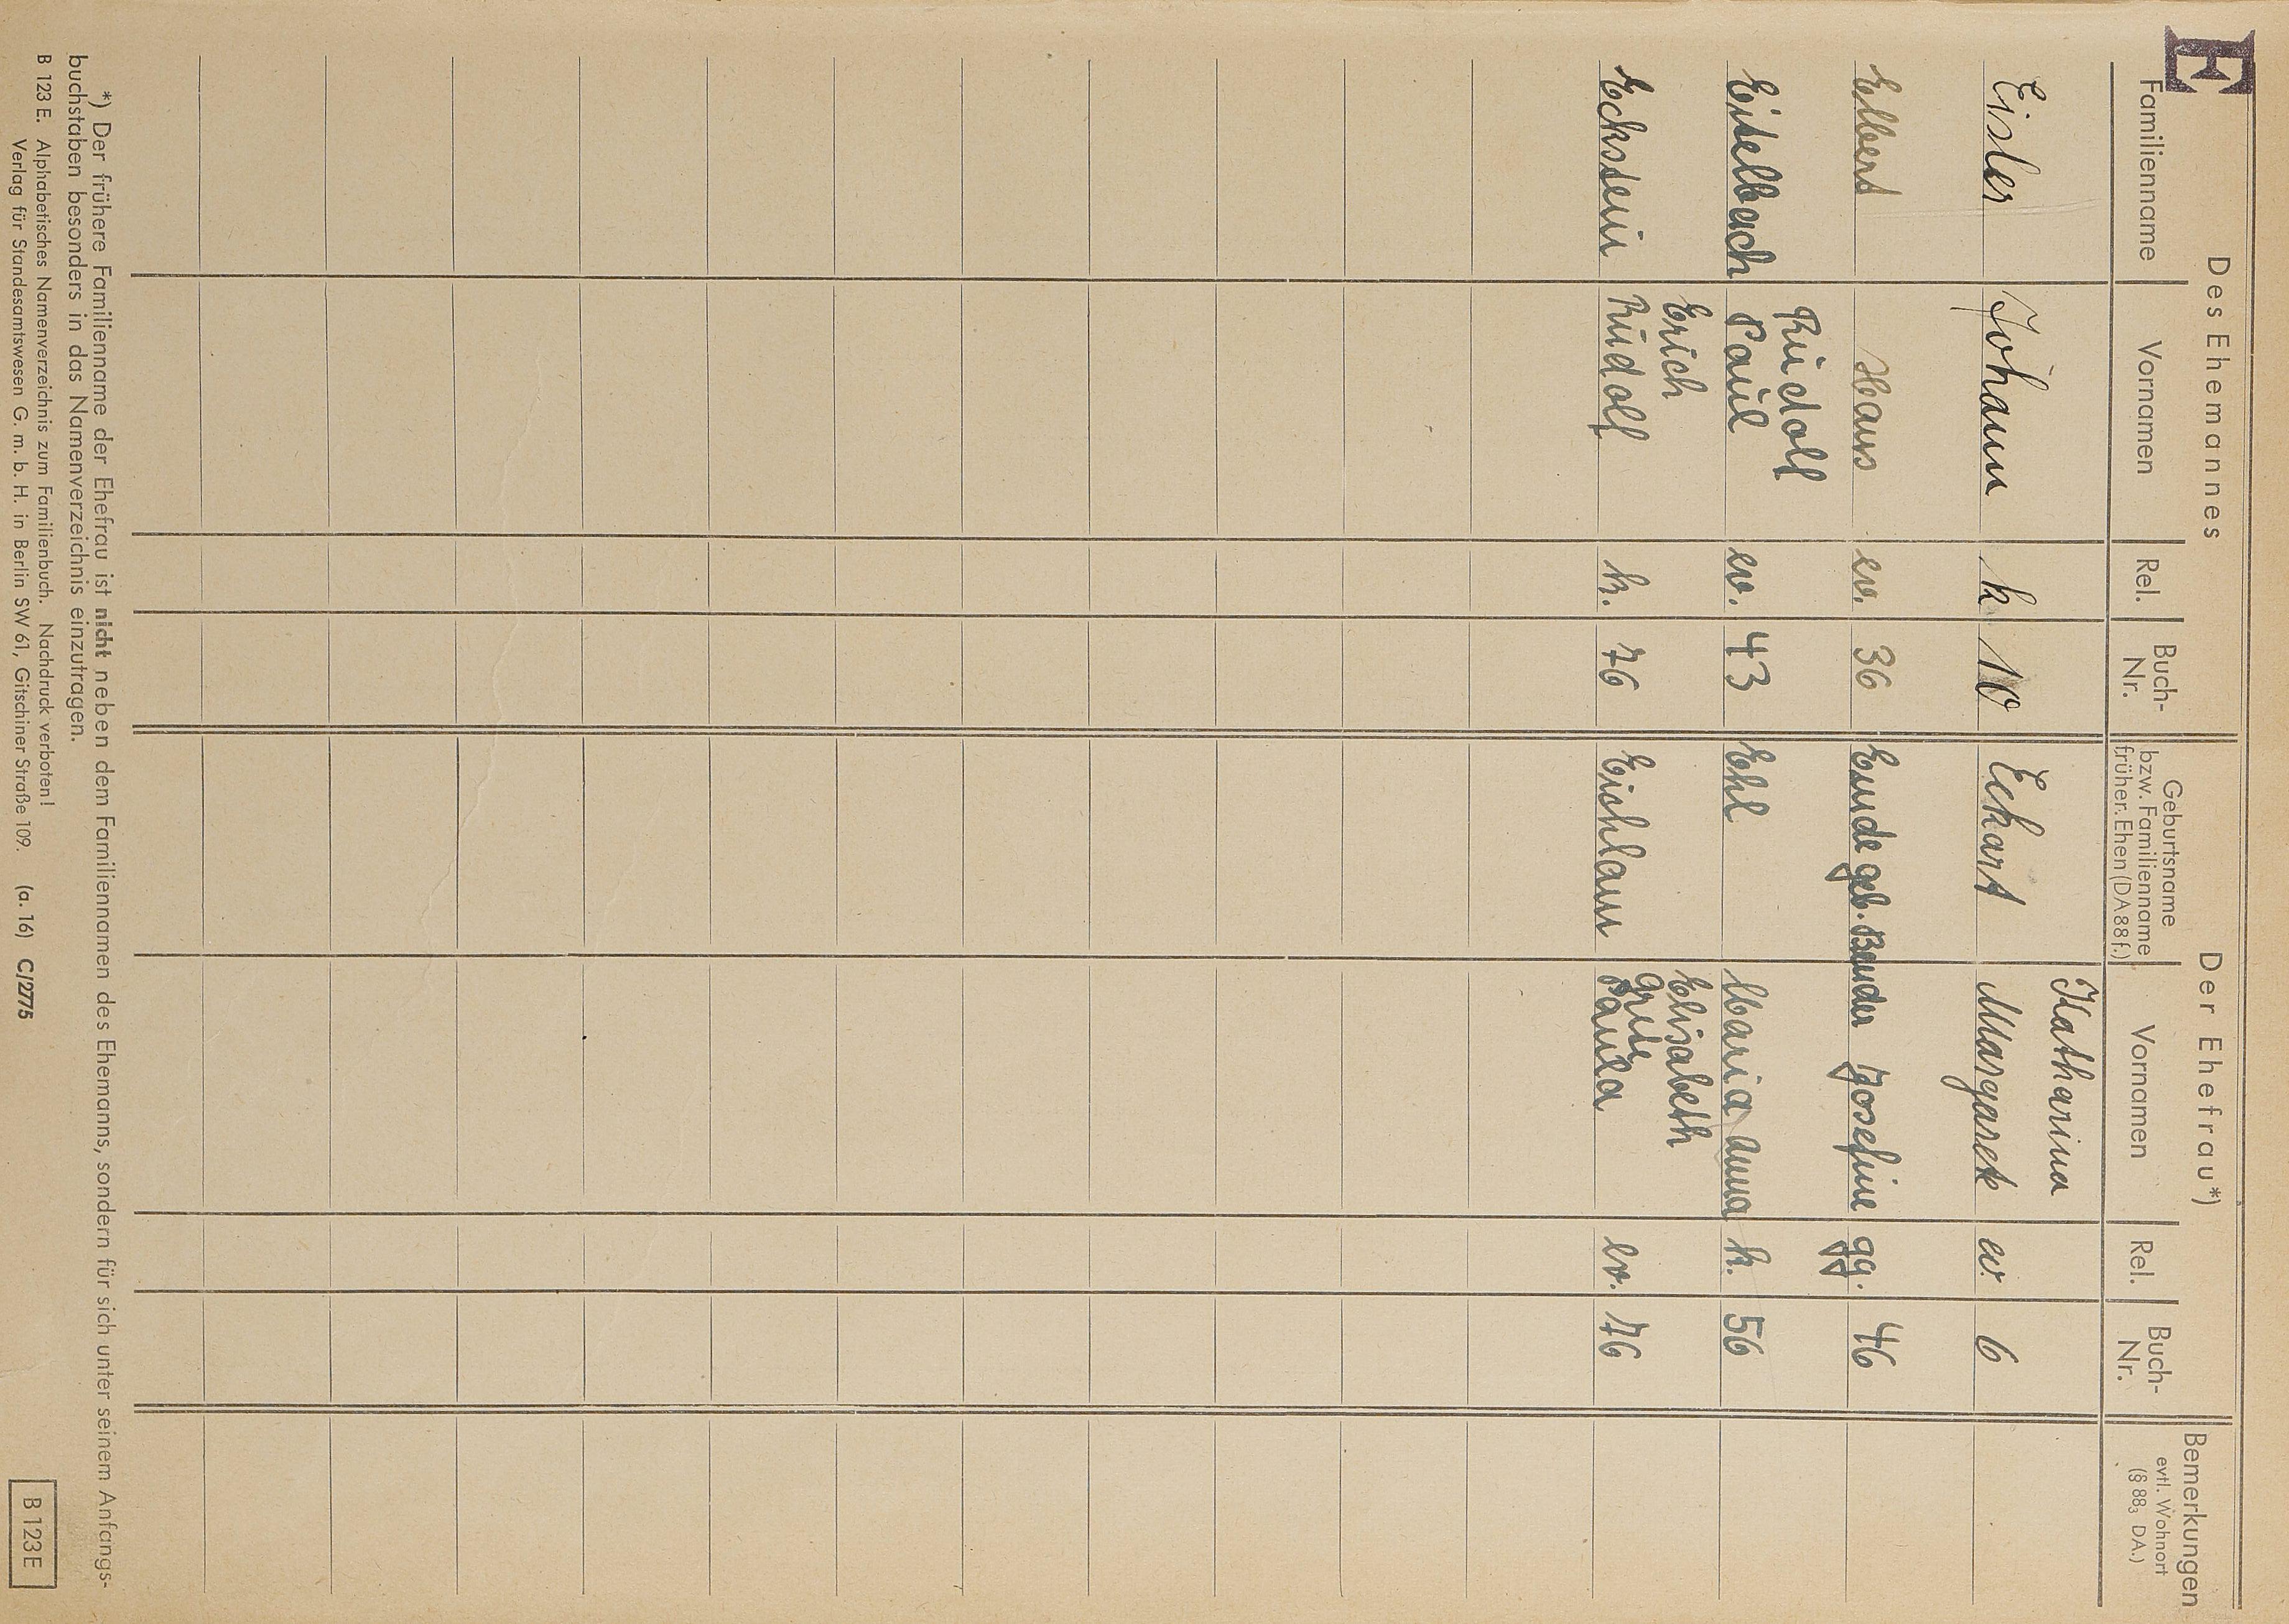 E
Des Ehemannes
Der Ehefrau*)
Bemerkungen
evtl. Wohnort
(§ 88₃ DA.)
Familienname
Vornamen
Rel.
Buch-
Nr.
Geburtsname
bzw. Familienname
früher. Ehen (DA 88 f.)
Vornamen
Rel.
Buch-
Nr.
Katharina
Eisler Johann k 10 Eckart Margarete ev. 6
Elbert Hans ev. 36 Emde geb. Bender Josefine gg. 46
Rudolf
Eitelbach Paul ev. 43 Ehl Maria Anna k. 56
Erich
Elisabeth
Grete
Eckstein Rudolf k. 76 Eichlau Paula ev. 76
*) Der frühere Familienname der Ehefrau ist nicht neben dem Familiennamen des Ehemanns, sondern für sich unter seinem Anfangs-
buchstaben besonders in das Namenverzeichnis einzutragen.
B 123 E. Alphabetisches Namenverzeichnis zum Familienbuch. Nachdruck verboten!
Verlag für Standesamtswesen G. m. b. H. in Berlin SW 61, Gitschiner Straße 109. (a. 16) C/2775
B 123 E